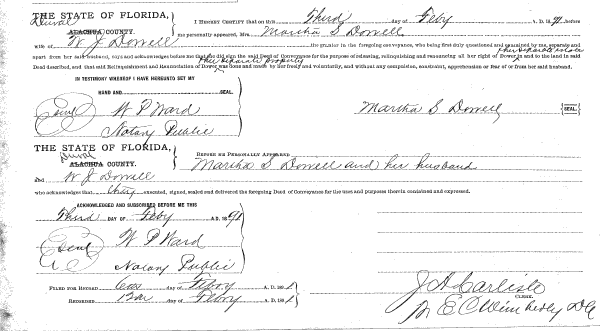 THE STATE OF FLORIDA,
Duval
ALACHUA COUNTY.
I HEREBY CERTIFY that on this Third day of Feby A. D. 1891, before
me personally appeared, Mrs. Martha S Dowell
wife of W J Dowell the grantor in the foregoing conveyance, who being first duly questioned and examined by me, separate and
apart from her said husband, says and acknowledges before me that she did sign the said Deed of Conveyance for the purpose of releasing, relinquishing and renouncing all her right of Dower in and to the land in said
Deed described, and that said Relinquishment and Renunciation of Dower was done and made by her freely and voluntarily, and without any compulsion, constraint, apprehension or fear of or from her said husband.
her separate property
IN TESTIMONY WHEREOF I HAVE HEREUNTO SET MY
HAND AND SEAL.
Seal
W P Ward
Notary Public
Martha S Dowell SEAL.
THE STATE OF FLORIDA,
Duval
ALACHUA COUNTY.
BEFORE ME PERSONALLY APPEARED
Martha S Dowell and her husband
and W J Dowell
who acknowledges that they executed, signed, sealed and delivered the foregoing Deed of Conveyance for the uses and purposes therein contained and expressed.
ACKNOWLEDGED AND SUBSCRIBED BEFORE ME THIS
Third DAY OF Feby A. D. 1891
Seal
W P Ward
Notary Public
FILED FOR RECORD day of Feby A. D. 1891
RECORDED day of Feby A. D. 1891
J A Carlisle
CLERK.
E C Wimberley D C